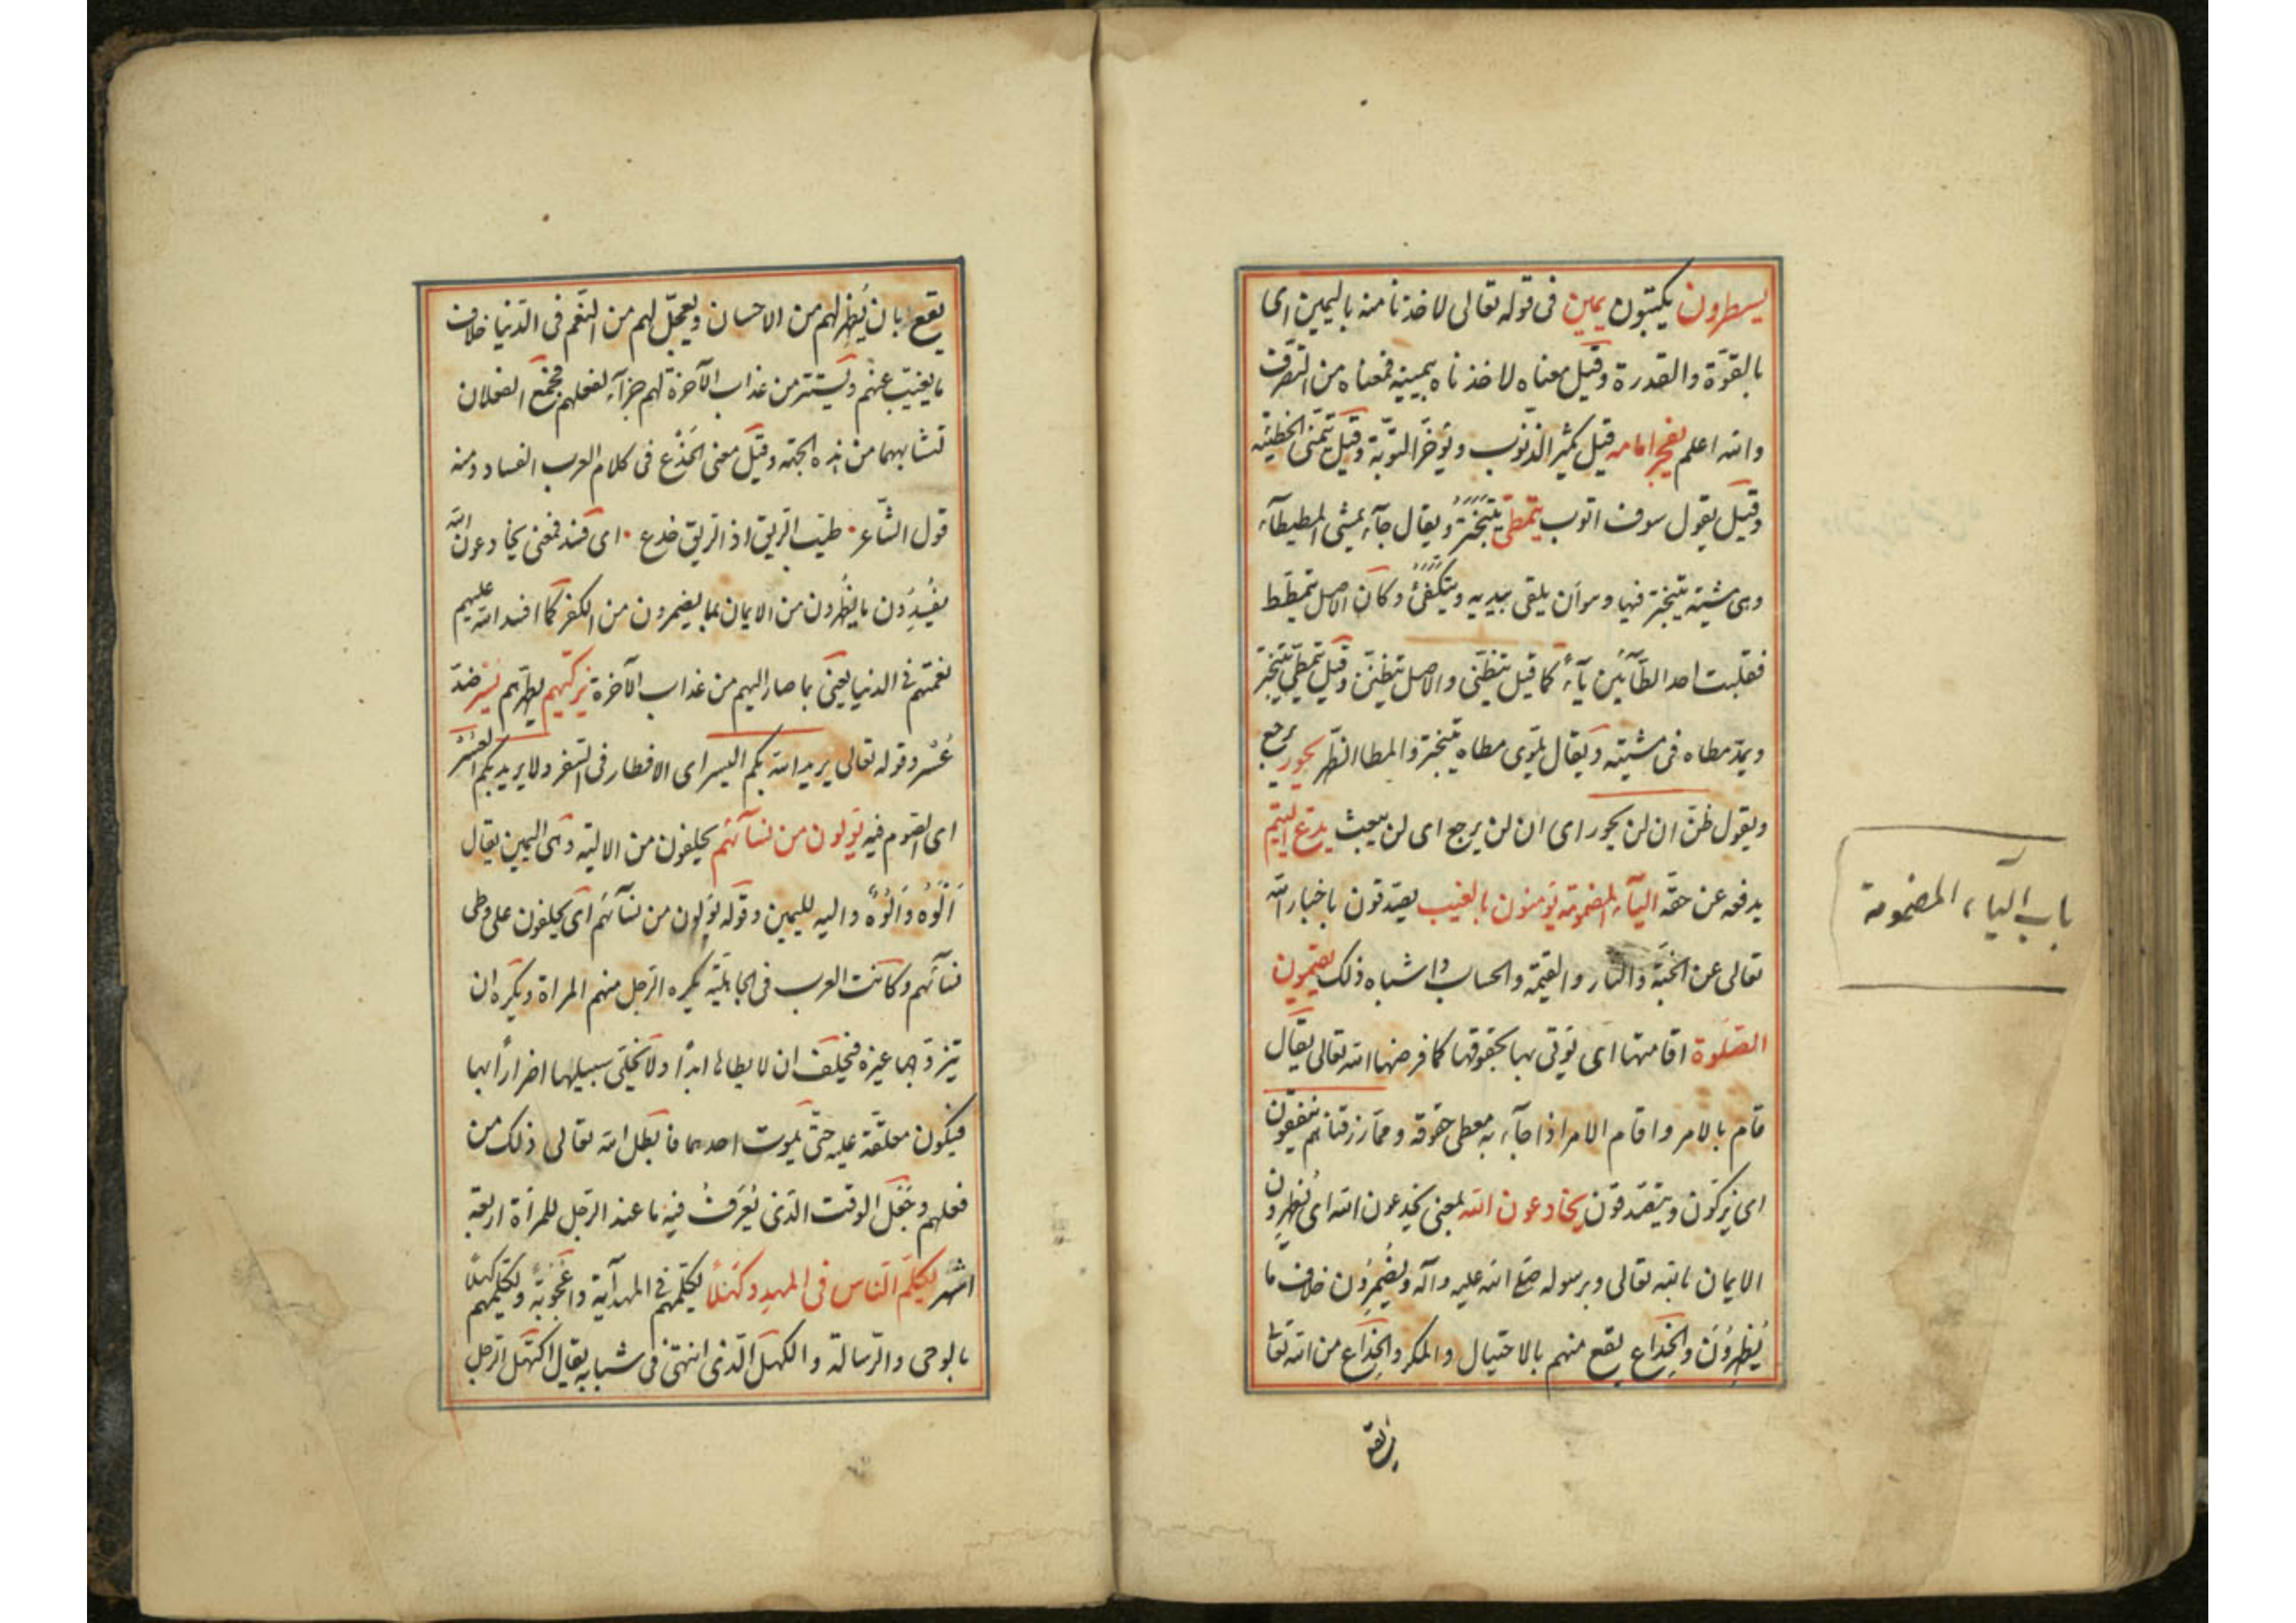 يسطرون يكتبون يمين فى قوله تعالى لاخذنا منه باليمين اى
بالقوّة والقدرة وقيل معناه لاخذناه بيمينه فمعناه من التصرّف
والله اعلم ليفجر امامه قيل يكثر الذّنوب ويؤخّر التّوبة وقيل يتمنّى الخطيئة
وقيل يقول سوف اتوب يتمطّى يتبختر ويقال جآء يمشى المطيطآء
وهى مشية يتبختر فيها وهو أن يلقى بيديه ويتكفّئ وكان الاصل يتمطّط
فقلبت احد الطّآئين يآءً كما قيل يتظنّى والاصل يتظنّن وقيل يتمطّى يتبختر
ويمدّ مطاه فى مشيته ويقال يلوى مطاه يتبختر والمطا الظّهر يحور يرجع
ويقول ظنّ ان لن يحور اى ان لن يرجع اى لن يبعث يدعّ اليتيم
يدفعه عن حقّه اليآء المضمومة يؤمنون بالغيب يصدّقون باخبار الله
تعالى عن الجنّة والنّار والقيمة والحساب واشباه ذلك يقيمون
الصّلوة اقامتها اى يؤتى بها بحقوقها كما فرضها الله تعالى يقال
قام بالامر واقام الامر اذا جآء به معطى حقوقه وممّا رزقناهم ينفقون
اى يزكّون ويتصدّقون يخادعون الله بمعنى يخدعون الله اى يُظهرون
الايمان بالله تعالى وبرسوله صلّى الله عليه وآله ويُضمِرُون خلاف ما
يُظهِرُون والخِداع يقع منهم بالاحتيال والمكر والخِداع من الله تعا
يقع
باب اليآء المضمومة
يقع بان يُظهر لهم من الاحسان ويعجّل لهم من النّعم فى الدّنيا خلاف
ما يغيّب عنهم ويستتر من عذاب الآخرة لهم جزآء لفعلهم فجمع الفعلان
لتشابههما من هذه الجهة وقيل معنى الخَدْع فى كلام العرب الفساد ومنه
قول الشّاعر طيّب الرّيق اذ الرّيق خدع اى فسد فمعنى يخادعون الله
يفسِدُون ما يظهرون من الايمان بما يضمرون من الكفر كما افسد الله عليهم
نعمتهم فى الدنيا يعنى بما صار اليهم من عذاب الآخرة يزكّيهم يطهّرهم يُسْر ضدّ
عُسْر وقوله تعالى يريد الله بكم اليسر اى الافطار فى السّفر ولا يريد بكم العُسْر
اى الصّوم فيه يؤلون من نسآئهم يحلفون من الالية وهى اليمين يقال
اَلْوَه وَاُلْوَه والية لليمين وقوله يؤلون من نسآئهم اى يحلفون على وطى
نسآئهم وكانت العرب فى الجاهليّة يكره الرّجل منهم المراة ويكره ان
يتزوّجها غيره فيحلف ان لا يطاها ابدًا ولا يخلّى سبيلها اضرارًا بها
فيكون معلّقة عليه حتّى يموت احدهما فابطل الله تعالى ذلك من
فعلهم وجعل الوقت الّذى يُعرَفُ فيه ما عند الرّجل للمرأة اربعة
اشهر يكلّم النّاس فى المهد وكهلًا يكلّمهم فى المهد آية واُعجوبة ويكلّمهم كهلًا
بالوحى والرّسالة والكهل الّذى انتهى فى شبابه يقال اكتهل الرّجل